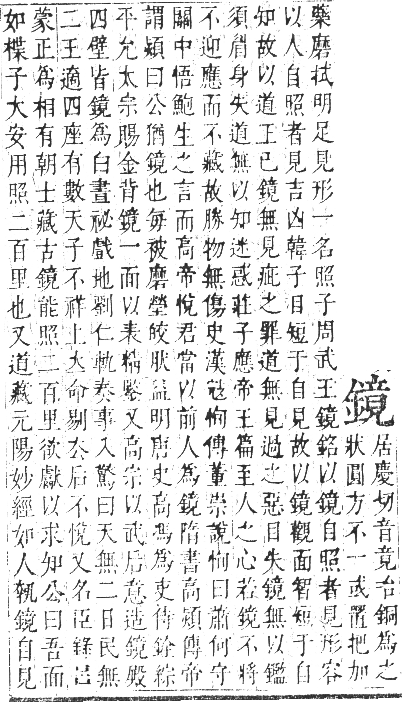 鏡
居慶切音竟台銅為之
狀圓方不一或置把加
藥磨拭明足見形一名照子周武王鏡銘以鏡自照者見形容
以人自照者見吉凶韓子目短于自見故以鏡觀面智短于自
知故以道正己鏡無見疵之罪道無見過之惡目失鏡無以鑑
須眉身失道無以知迷惑莊子應帝王篇至人之心若鏡不將
不迎應而不藏故勝物無傷史漢冦恂傳董崇說恂曰蕭何守
關中悟鮑生之言而高帝悅君當以前人為鏡隋書高熲傳帝
謂熲曰公猶鏡也每被磨瑩皎狀益明唐史高馮為吏侍銓綜
平允太宗賜金背鏡一面以表精鑒又高宗以武后意造鏡殿
四壁皆鏡為白晝祕戲地劉仁軌奏事入驚曰天無二日民無
二王適四座有數天子不祥上大命剔去后不悅又名臣錄呂
蒙正為相有朝士藏古鏡能照二百里欲獻以求知公曰吾面
如楪子大安用照二百里也又道藏元陽妙經如人執鏡自見